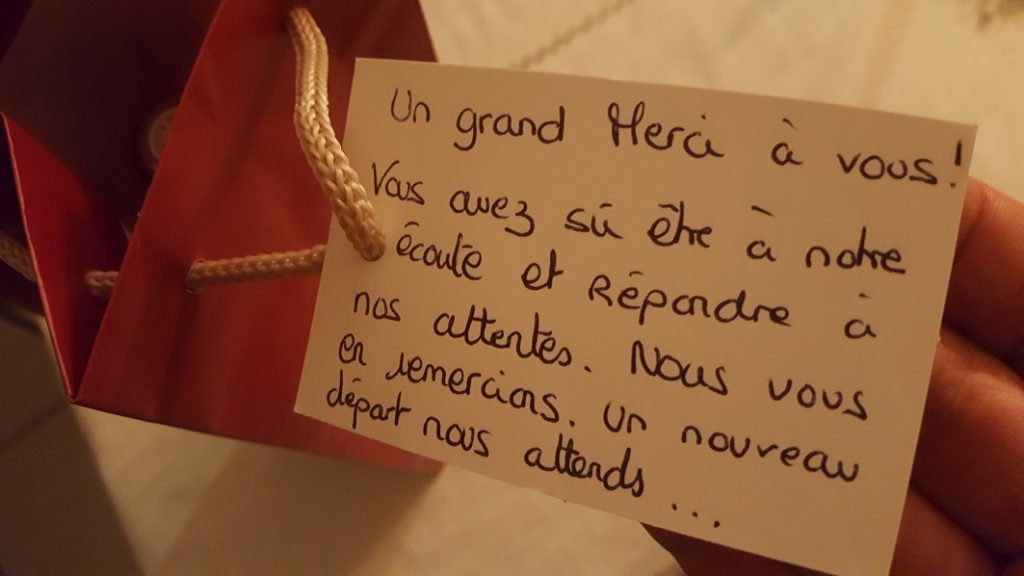 Un grand Merci à vous!
Vous avez sû être à notre
écoute et Répondre à
nos attentes. Nous vous
en remercions. Un nouveau
départ nous attends ...